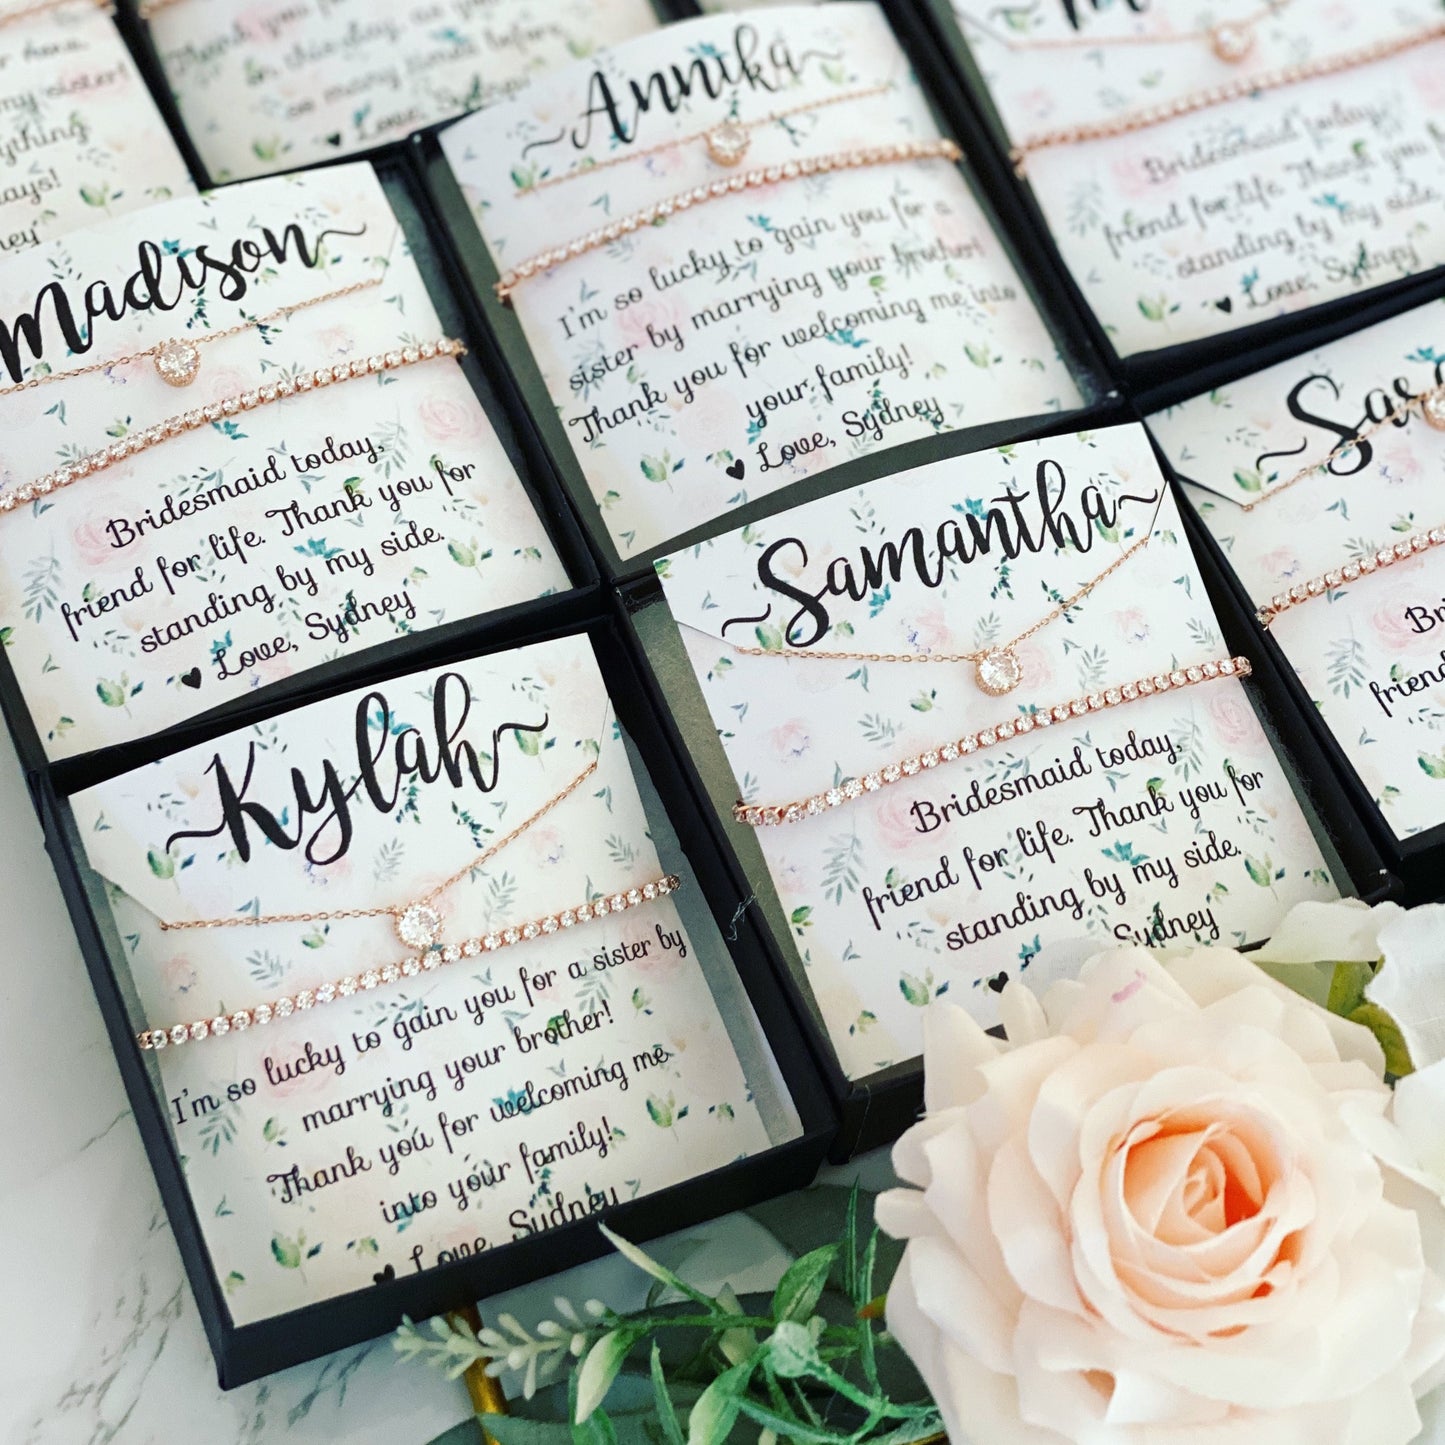 here
my sister!
days!
Thank you
on this day, as you
so many times before
Love, Sydney
Annika
I'm so lucky to gain you for a
sister by marrying your brother!
Thank you for welcoming me into
your family!
Love, Sydney
Bridesmaid today,
friend for life. Thank you for
standing by my side.
Love, Sydney
Madison
Bridesmaid today,
friend for life. Thank you for
standing by my side.
Love, Sydney
Samantha
Bridesmaid today,
friend for life. Thank you for
standing by my side.
Sydney
Kylah
I'm so lucky to gain you for a sister by
marrying your brother!
Thank you for welcoming me
into your family!
Love, Sydney